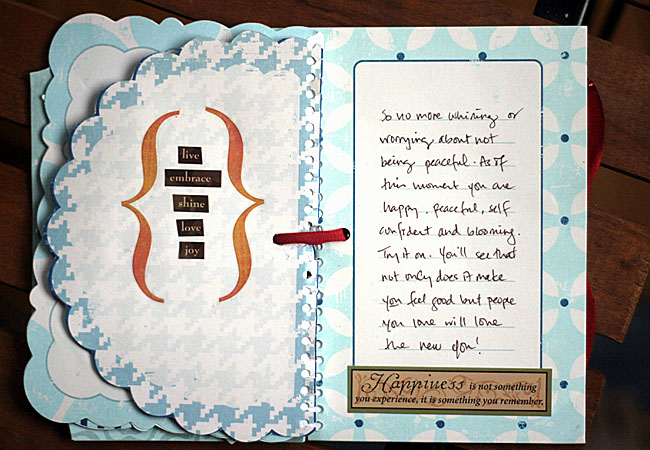 live
embrace
shine
love
joy
So no more whining or
worrying about not
being peaceful. As of
this moment you are
happy, peaceful, self
confident and blooming.
Try it on. You'll see that
not only does it make
you feel good but people
you love will love
the new you!
Happiness is not something
you experience, it is something you remember.